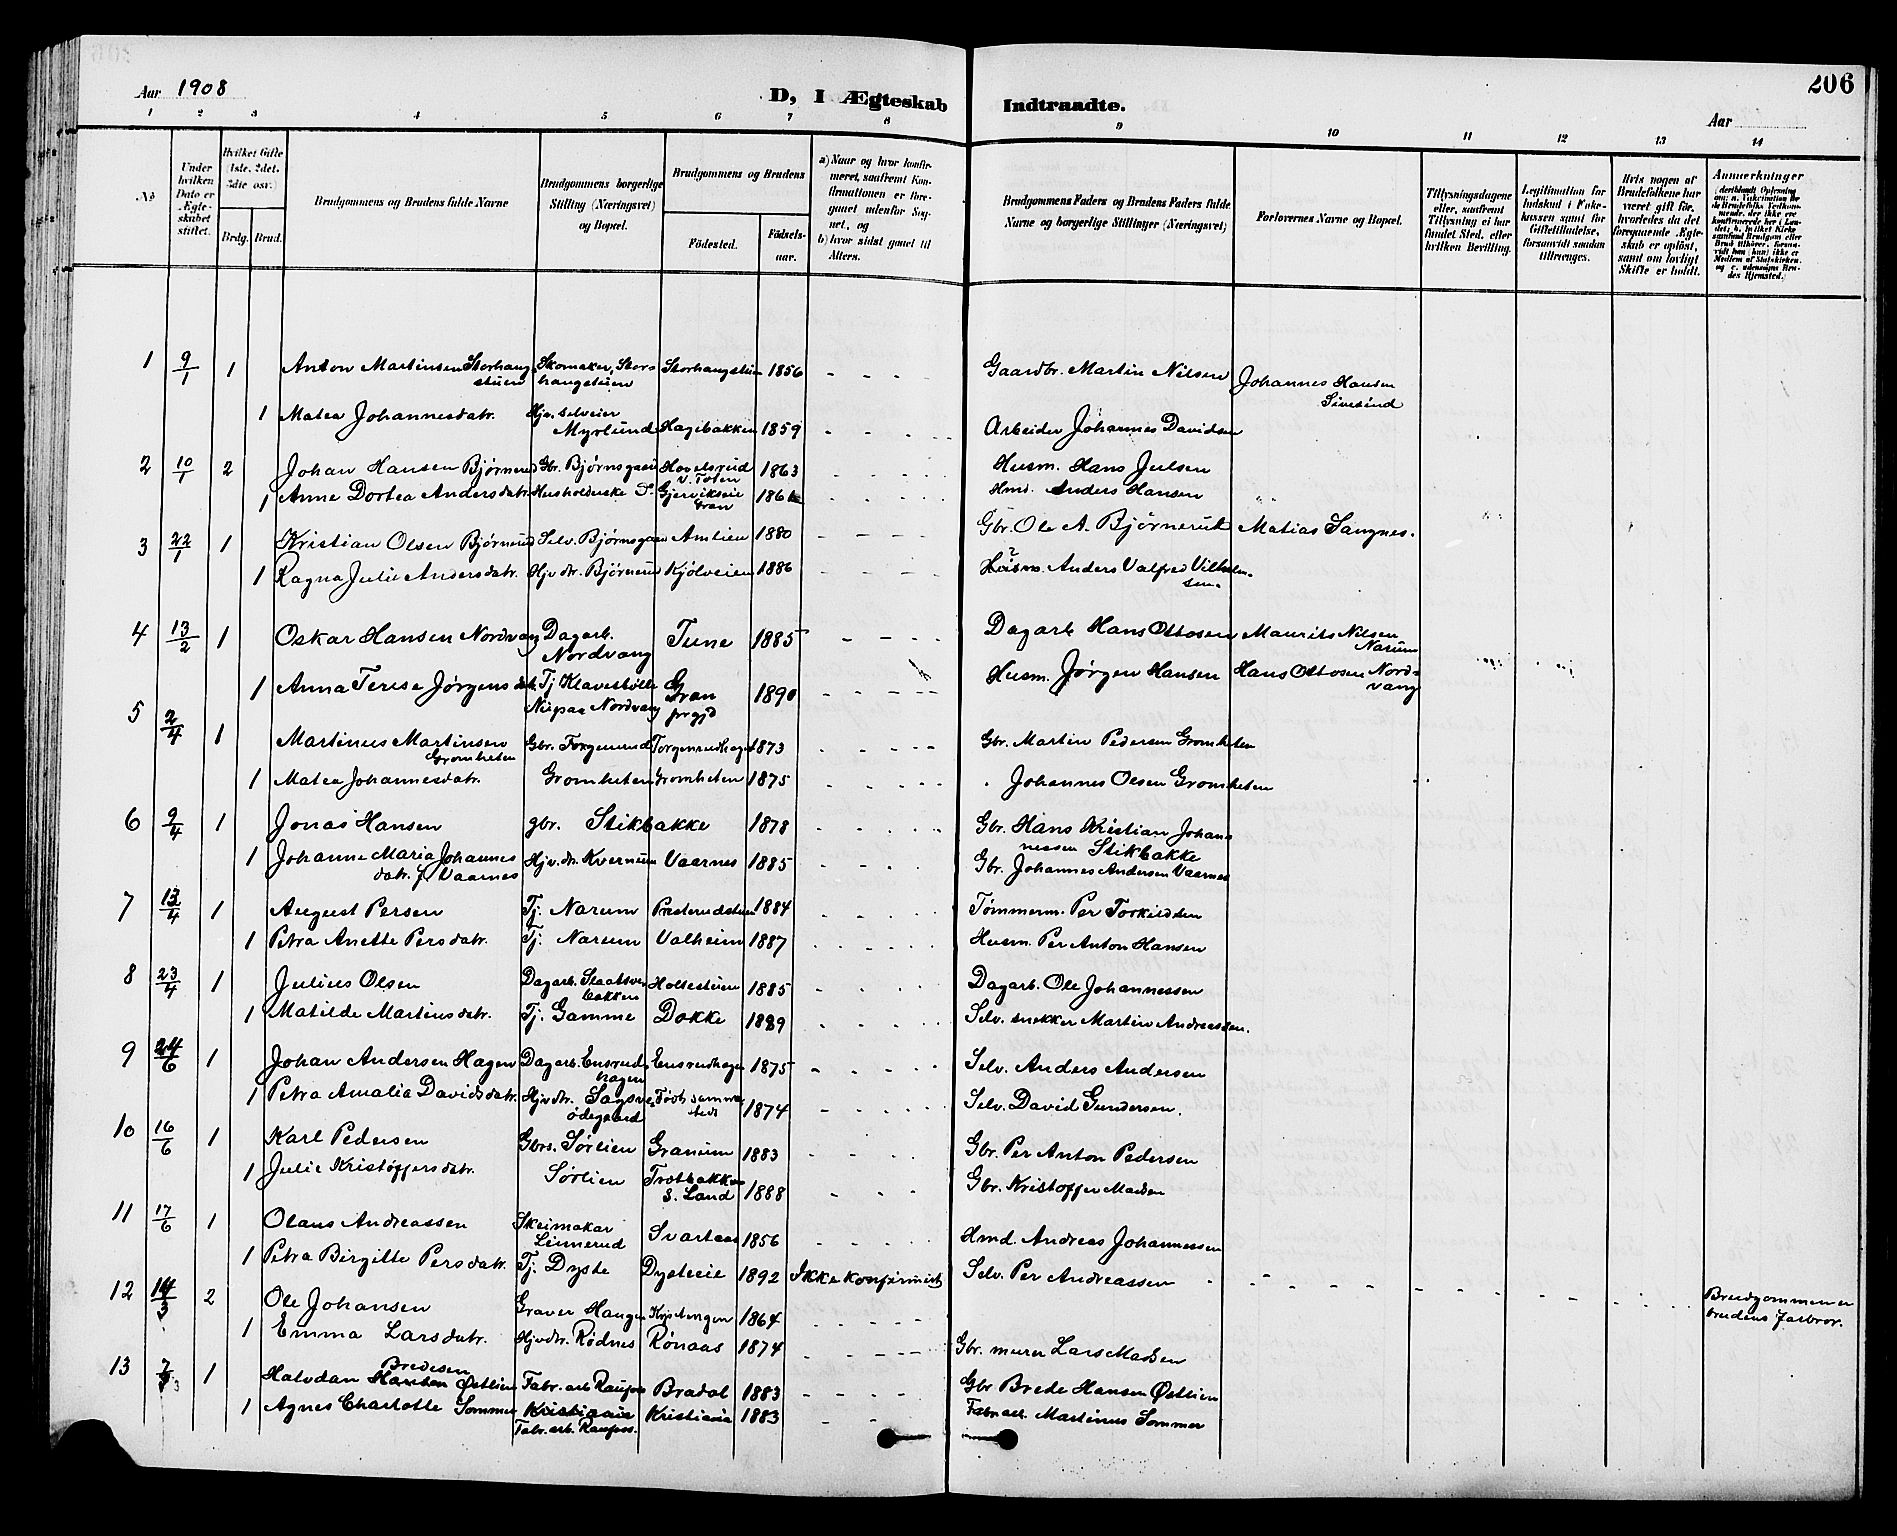 206
Aar 1908
D, I Ægteskab Indtraadte.
Aar
1 2 3 4 5 6 7 8 9 10 11 12 13 14
No
Under hvilken Dato er Ægteskabet stiftet.
Hvilket Gifte (1ste, 2det, 3die osv.)
Brdg. Brud.
Brudgommens og Brudens fulde Navne
Brudgommens borgerlige Stilling (Næringsvei) og Bopæl.
Brudgommens og Brudens
Födested.
Födsels-aar.
a) Naar og hvor konfirmeret, saafremt Konfirmationen er foregaaet udenfor Sognet, og
b) hvor sidst gaaet til Alters.
Brudgommens Faders og Brudens Faders fulde Navne og borgerlige Stillinger (Næringsvei)
Forlovernes Navne og Bopæl.
Tillysningsdagene eller, saafremt Tillysning ei har fundet Sted, efter hvilken Bevilling.
Legitimation for Indskud i Enkekassen samt for Giftetilladelse, forsaavidt saadan tiltrænges.
Hvis nogen af Brudefolkene har været gift før, hvorledes da det foregaaende Ægteskab er opløst, samt om lovligt Skifte er holdt.
Anmærkninger
1 9/1 1 Anton Martinsen Storhaugstuen Skomaker, Storhaugstuen Storhaugstuen 1856 - - - Gaardbr. Martin Nilsen Johannes Hansen Sivesind
1 Matea Johannesdatr. Hjv. selveier Myrlund Hagebakken 1859 - - - Arbeider Johannes Davidsen
2 10/1 2 Johan Hansen Bjørnerud Gbr. Bjørnsgaard Hovelsrud V. Toten 1863 - - - Husm. Hans Julsen
1 Anne Dortea Andersdatr. Husholderske Gjerviksie Gran 1861 - - - Hmd. Anders Hansen
3 22/1 1 Kristian Olsen Bjørnerud Selv. Bjørnsgaar Amlien 1880 - - - Gbr. Ole A. Bjørnerud Matias Sangnes.
1 Ragna Julie Andersdatr. Hjv. dtr. Bjørnerud Kjölveien 1886 - - - Husm. Anders Valfred Vilhelmsen.
4 13/2 1 Oskar Hansen Nordvang Dagarb. Nordvang Tune 1885 - - - Dagarb Hans Ottosen Maurits Nilsen Narum
1 Anna Terese Jørgensdtr. Tj Klavestølle Nupaa Nordvang Gran prgjd 1890 - - - Husm. Jørgen Hansen Hans Ottosen Nordvang
5 2/4 1 Martinus Martinsen Gromheten Gbr. Torgerrud Torgerrudhagen 1873 - - - Gbr. Martin Pedersen Gromheten
1 Matea Johannesdatr. Gromheten Gromheten 1875 - - - Johannes Olsen Gromheten
6 9/4 1 Jonas Hansen gbr. Stikbakke 1878 - - - Gbr. Hans Kristian Johannessen Stikbakke
1 Johanne Maria Johannesdatr. f. Vaarnes Hjv. dtr. Kvernum Vaarnes 1885 - - - Gbr. Johannes Andersen Vaarnes
7 12/4 1 August Persen Tj. Narum Presterudstuen 1884 - - - Tømmerm. Per Torkildsen
1 Petra Anette Persdatr. Tj. Narum Valheim 1887 - - - Husm. Per Anton Hansen
8 23/4 1 Julius Olsen Dagarb. Slaatsvebakken Holtesteien 1885 - - - Dagarb. Ole Johannessen
1 Matilde Martinsdatr. Tj. Gamme Dokke 1889 - - - Selv. snekker Martin Andreassen.
9 24/6 1 Johan Andersen Hagen Dagarb. Ensrudhagen Ensrudhagen 1875 - - - Selv. Anders Andersen
1 Petra Amalia Davidsdatr. Hjv dtr. Sagsveødegaard Født sammesteds 1874 - - - Selv. David Gundersen.
10 16/6 1 Karl Pedersen Gbrs. Sørlien Granum 1883 - - - Gbr. Per Anton Pedersen
1 Julie Kristoffersdatr. Sørlien Trotbakken S. Land 1888 - - - Gbr. Kristoffer Madsen
11 17/6 1 Olaus Andreassen Skeimakar Linnerud Svartaas 1856 - - - Hmd. Andreas Johannessen
1 Petra Birgitte Persdatr. Tj. Dyste Dysteeie 1892 Ikke konfirmert Selv. Per Andreassen - - - Brudgommen er brudens farbror.
12 14/3 2 Ole Johansen Graver Haugen 1864 - - -
1 Emma Larsdatr. Hjvdtr. Rødnes Rønaas 1874 - - - Gbr. murer Lars Madsen
13 7/3 1 Halvdan Bredesen Østlien Fabr. arb Raufos Bradal 1883 - - - Gbr Brede Hansen Østlien
1 Agnes Charlotte Sommer Kristiania Fabr. arb. Raufoss. Kristiania 1883 - - Fabr arb. Martinus Sommer